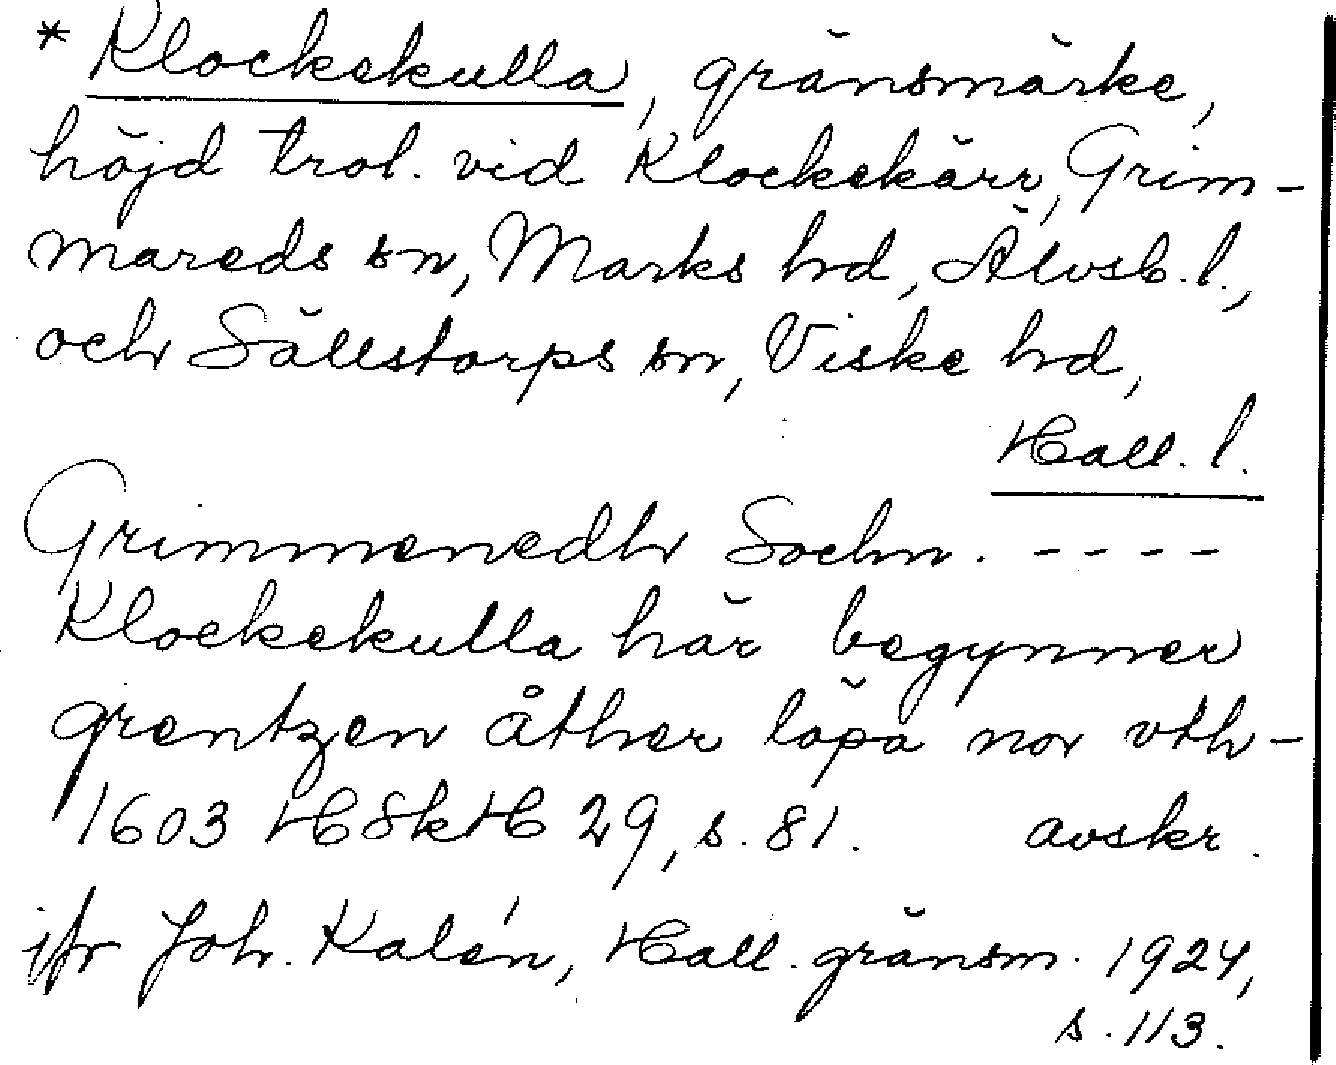 * Klockekulla, gränsmärke,
höjd trol. vid Klockekärr, Grim-
mareds sn, Marks hd, Älvsb. l.,
och Sällstorps sn, Viske hd,
Hall. l.
Grimmenedh Sochn. - - - -
Klockekulla här begynner
grentzen åther löpa nor vth-
1603 HSkH 29, s. 81. avskr.
jfr Joh. Kalén, Hall. gränsm. 1924,
s. 113.